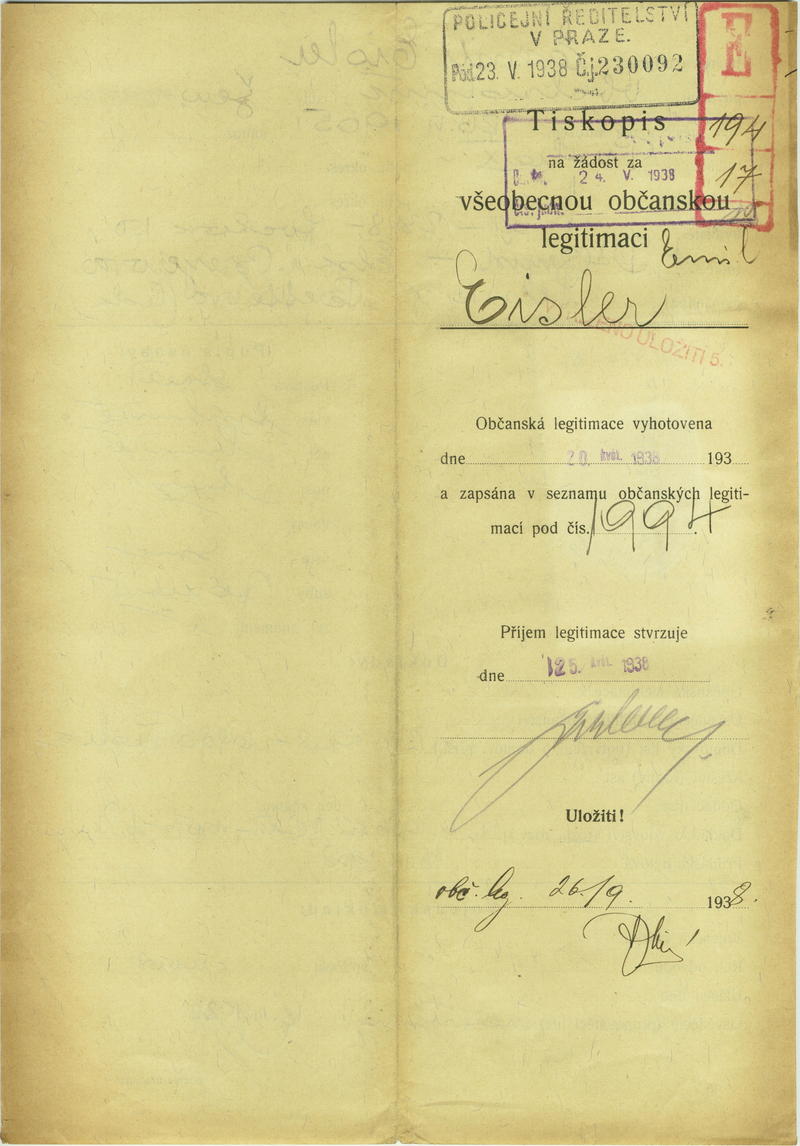 POLICEJNÍ ŘEDITELSTVÍ
V PRAZE.
23. V. 1938 Čj. 230092
E
Tiskopis
194
na žádost za
24. V. 1938
17
všeobecnou občanskou
legitimaci Emil
Eisler
ULOŽITI 5.
Občanská legitimace vyhotovena
dne 20. květ. 1938 193
a zapsána v seznamu občanských legiti-
mací pod čís. 1994
Příjem legitimace stvrzuje
dne 25. kvě. 1938
Uložiti!
obč. leg. 26./9. 1938.